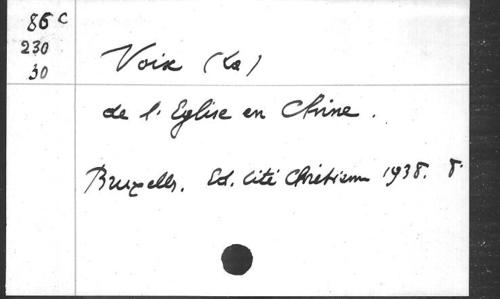 86 C
230
30
Voix (La)
de l'Eglise en Chine.
Bruxelles. Ed. Cité Chrétienne 1938. 8°